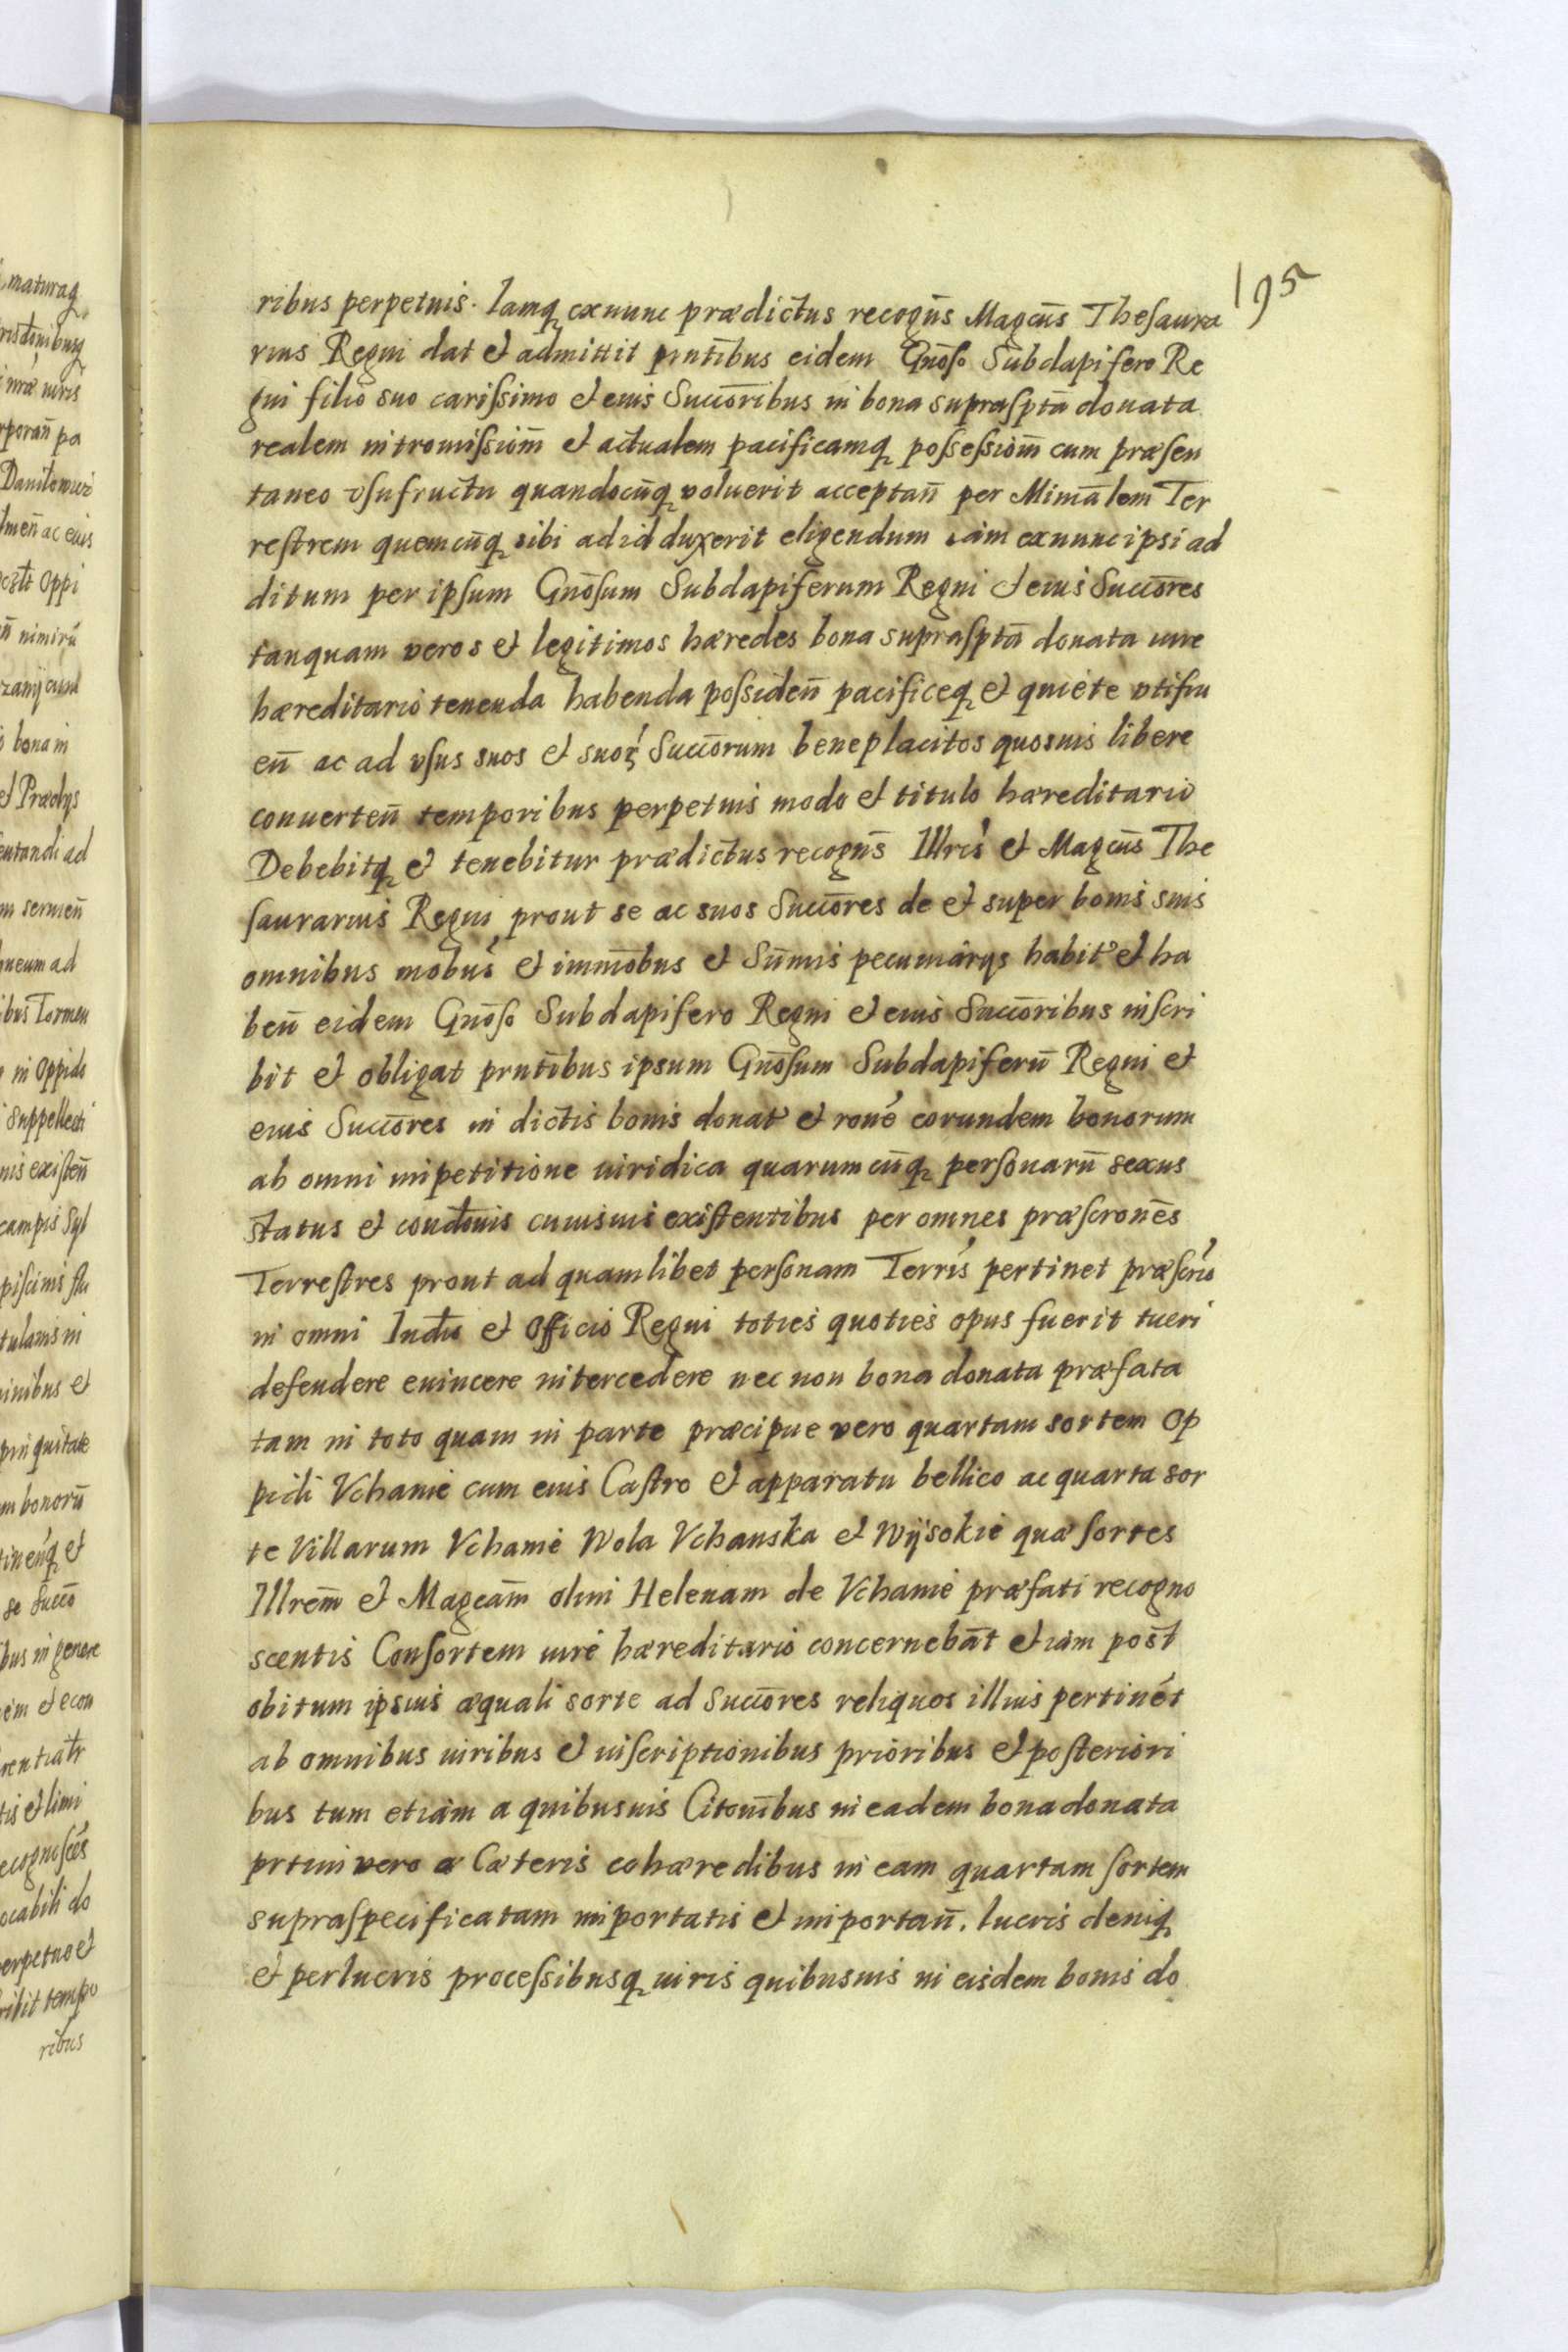 195
ribus perpetuis. Iamq₃ exnunc prædictus recogn̄s Magcūs Thesaura
rius Regni dat et admittit pn̄tibus eidem Gnōso Subdapifero Re
gni filio suo carissimo et eius Succōribus in bona suprasptā donata
realem intromissiōm et actualem pacificamq₃ possessiōm cum præsen
taneo vsufructu quandocūq₃ voluerit acceptan̄ per Mimālem Ter
restrem quemcūq₃ sibi ad id duxerit eligendum iam exnunc ipsi ad
ditum per ipsum Gnōsum Subdapiferum Regni et eius Succōres
tanquam veros et legitimos hæredes bona suprasptā donata iure
hæreditario tenenda habenda possiden̄ pacificeq₃ et quiete vtifru
en̄ ac ad vsus suos et suoꝝ Succōrum beneplacitos quosuis libere
conuerten̄ temporibus perpetuis modo et titulo hæreditario
Debebitq₃ et tenebitur prædictus recogn̄s Illris et Magcūs The
saurarius Regni prout se ac suos Succōres de et super bonis suis
omnibus mobūs et immōbus et Sūmis pecuniarijs habit' et ha
ben̄ eidem Gnōso Subdapifero Regni et eius Succōribus inscri
bit et obligat prn̄tibus ipsum Gnōsum Subdapiferū Regni et
eius Succōres in dictis bonis donat' et rone eorundem bonorum
ab omni impetitione iuridica quarumcūq₃ personarū sexus
status et condōnis cuiusuis existentibus per omnes præscronēs
Terrestres prout ad quamlibet personam Terris pertinet præscrio
in omni Iudio et Officio Regni toties quoties opus fuerit tueri
defendere euincere intercedere nec non bona donata præfata
tam in toto quam in parte præcipue vero quartam sortem Op
pidi Vchanie cum eius Castro et apparatu bellico ac quarta sor
te Villarum Vchanie Wola Vchanska et Wijsokie quæ sortes
Illrem̄ et Magcam̄ olim Helenam de Vchanie præfati recogno
scentis Consortem iure hæreditario concernebāt et iam post
obitum ipsius æquali sorte ad Succōres reliquos illius pertinét
ab omnibus iuribus et inscriptionibus prioribus et posteriori
bus tum etiam a quibusuis Citonībus in eadem bona donata
prtim vero a Cæteris cohæredibus in eam quartam sortem
supraspecificatam importatis et importan̄. lucris deniq₃
et perlucris processibusq₃ iuris quibusuis in eisdem bonis do